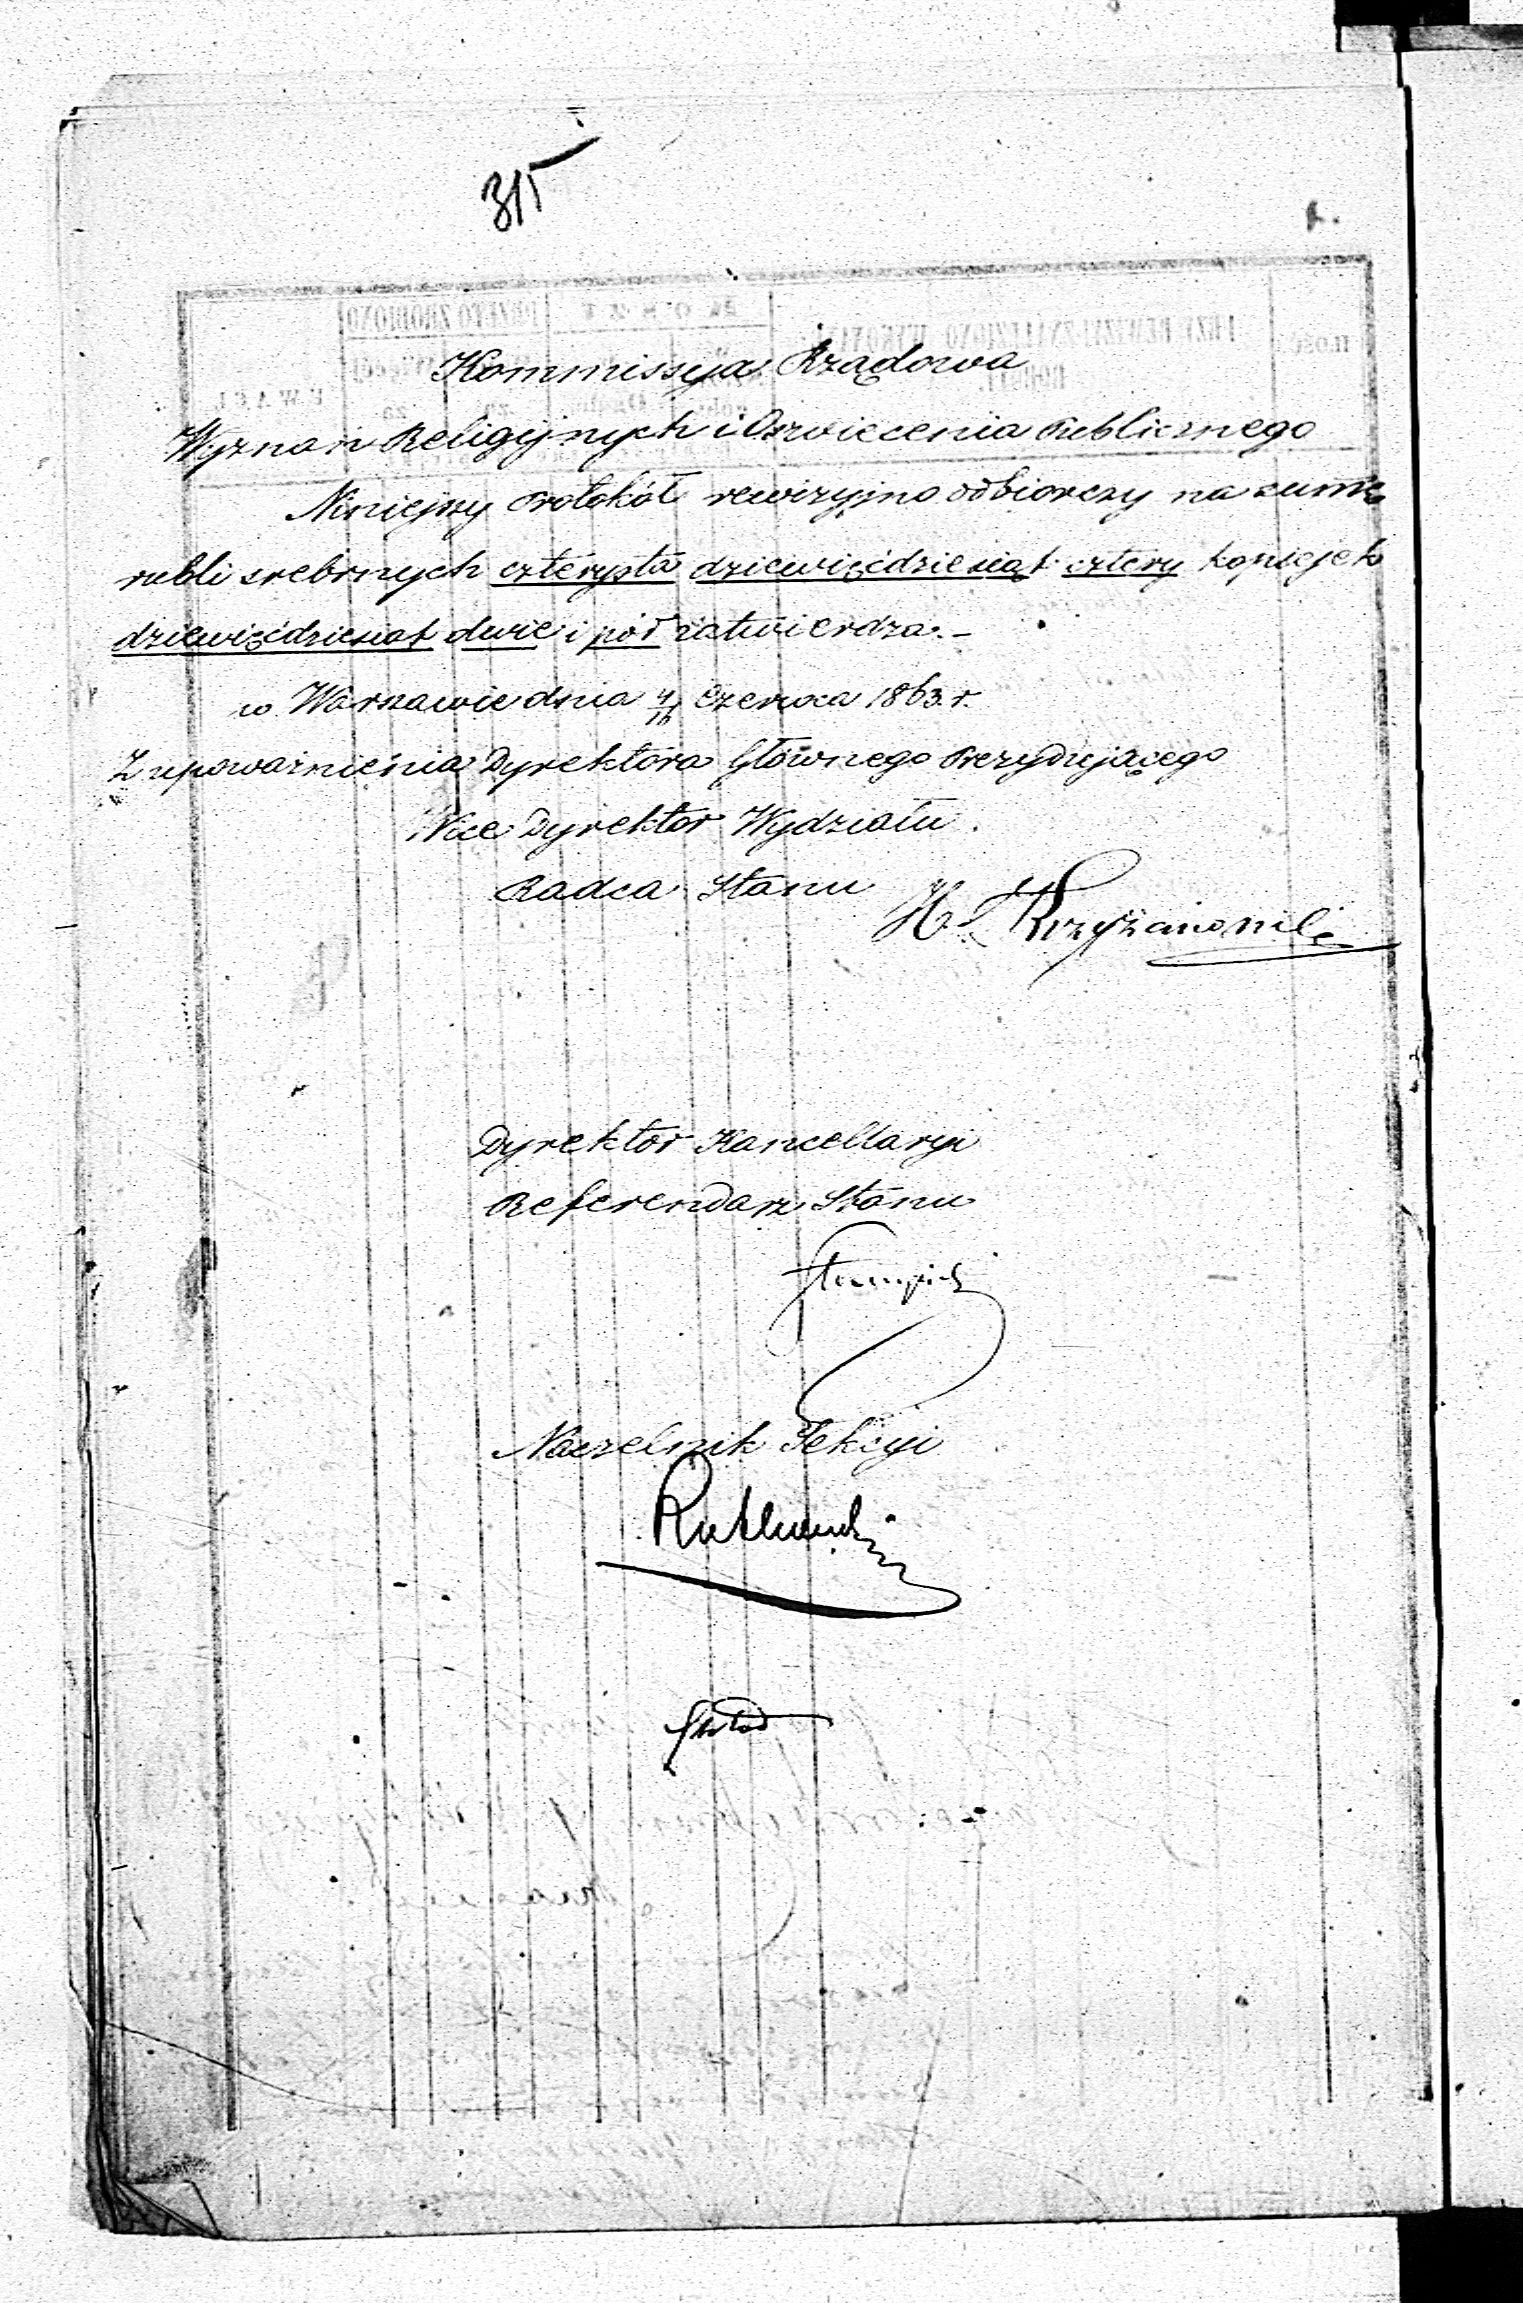 315
Kommissya Rządowa
Wyznań Religijnych i Oświecenia Publicznego
Niniejszy Protokół rewizyjno odbiorczy na summę
rubli srebrnych czterysta dziewięćdziesiąt cztery kopiejek
dziewięćdziesiąt dwie i pół zatwierdza.-
w Warszawie dnia 4/16 Czerwca 1863 r.
Z upoważnienia Dyrektora Głównego Prezydującego
Vice Dyrektor Wydziału
Radca Stanu
Krzyżanowski
Dyrektor Kancellaryi
Referendarz Stanu
Naczelnik Sekcyi
Rutkowski